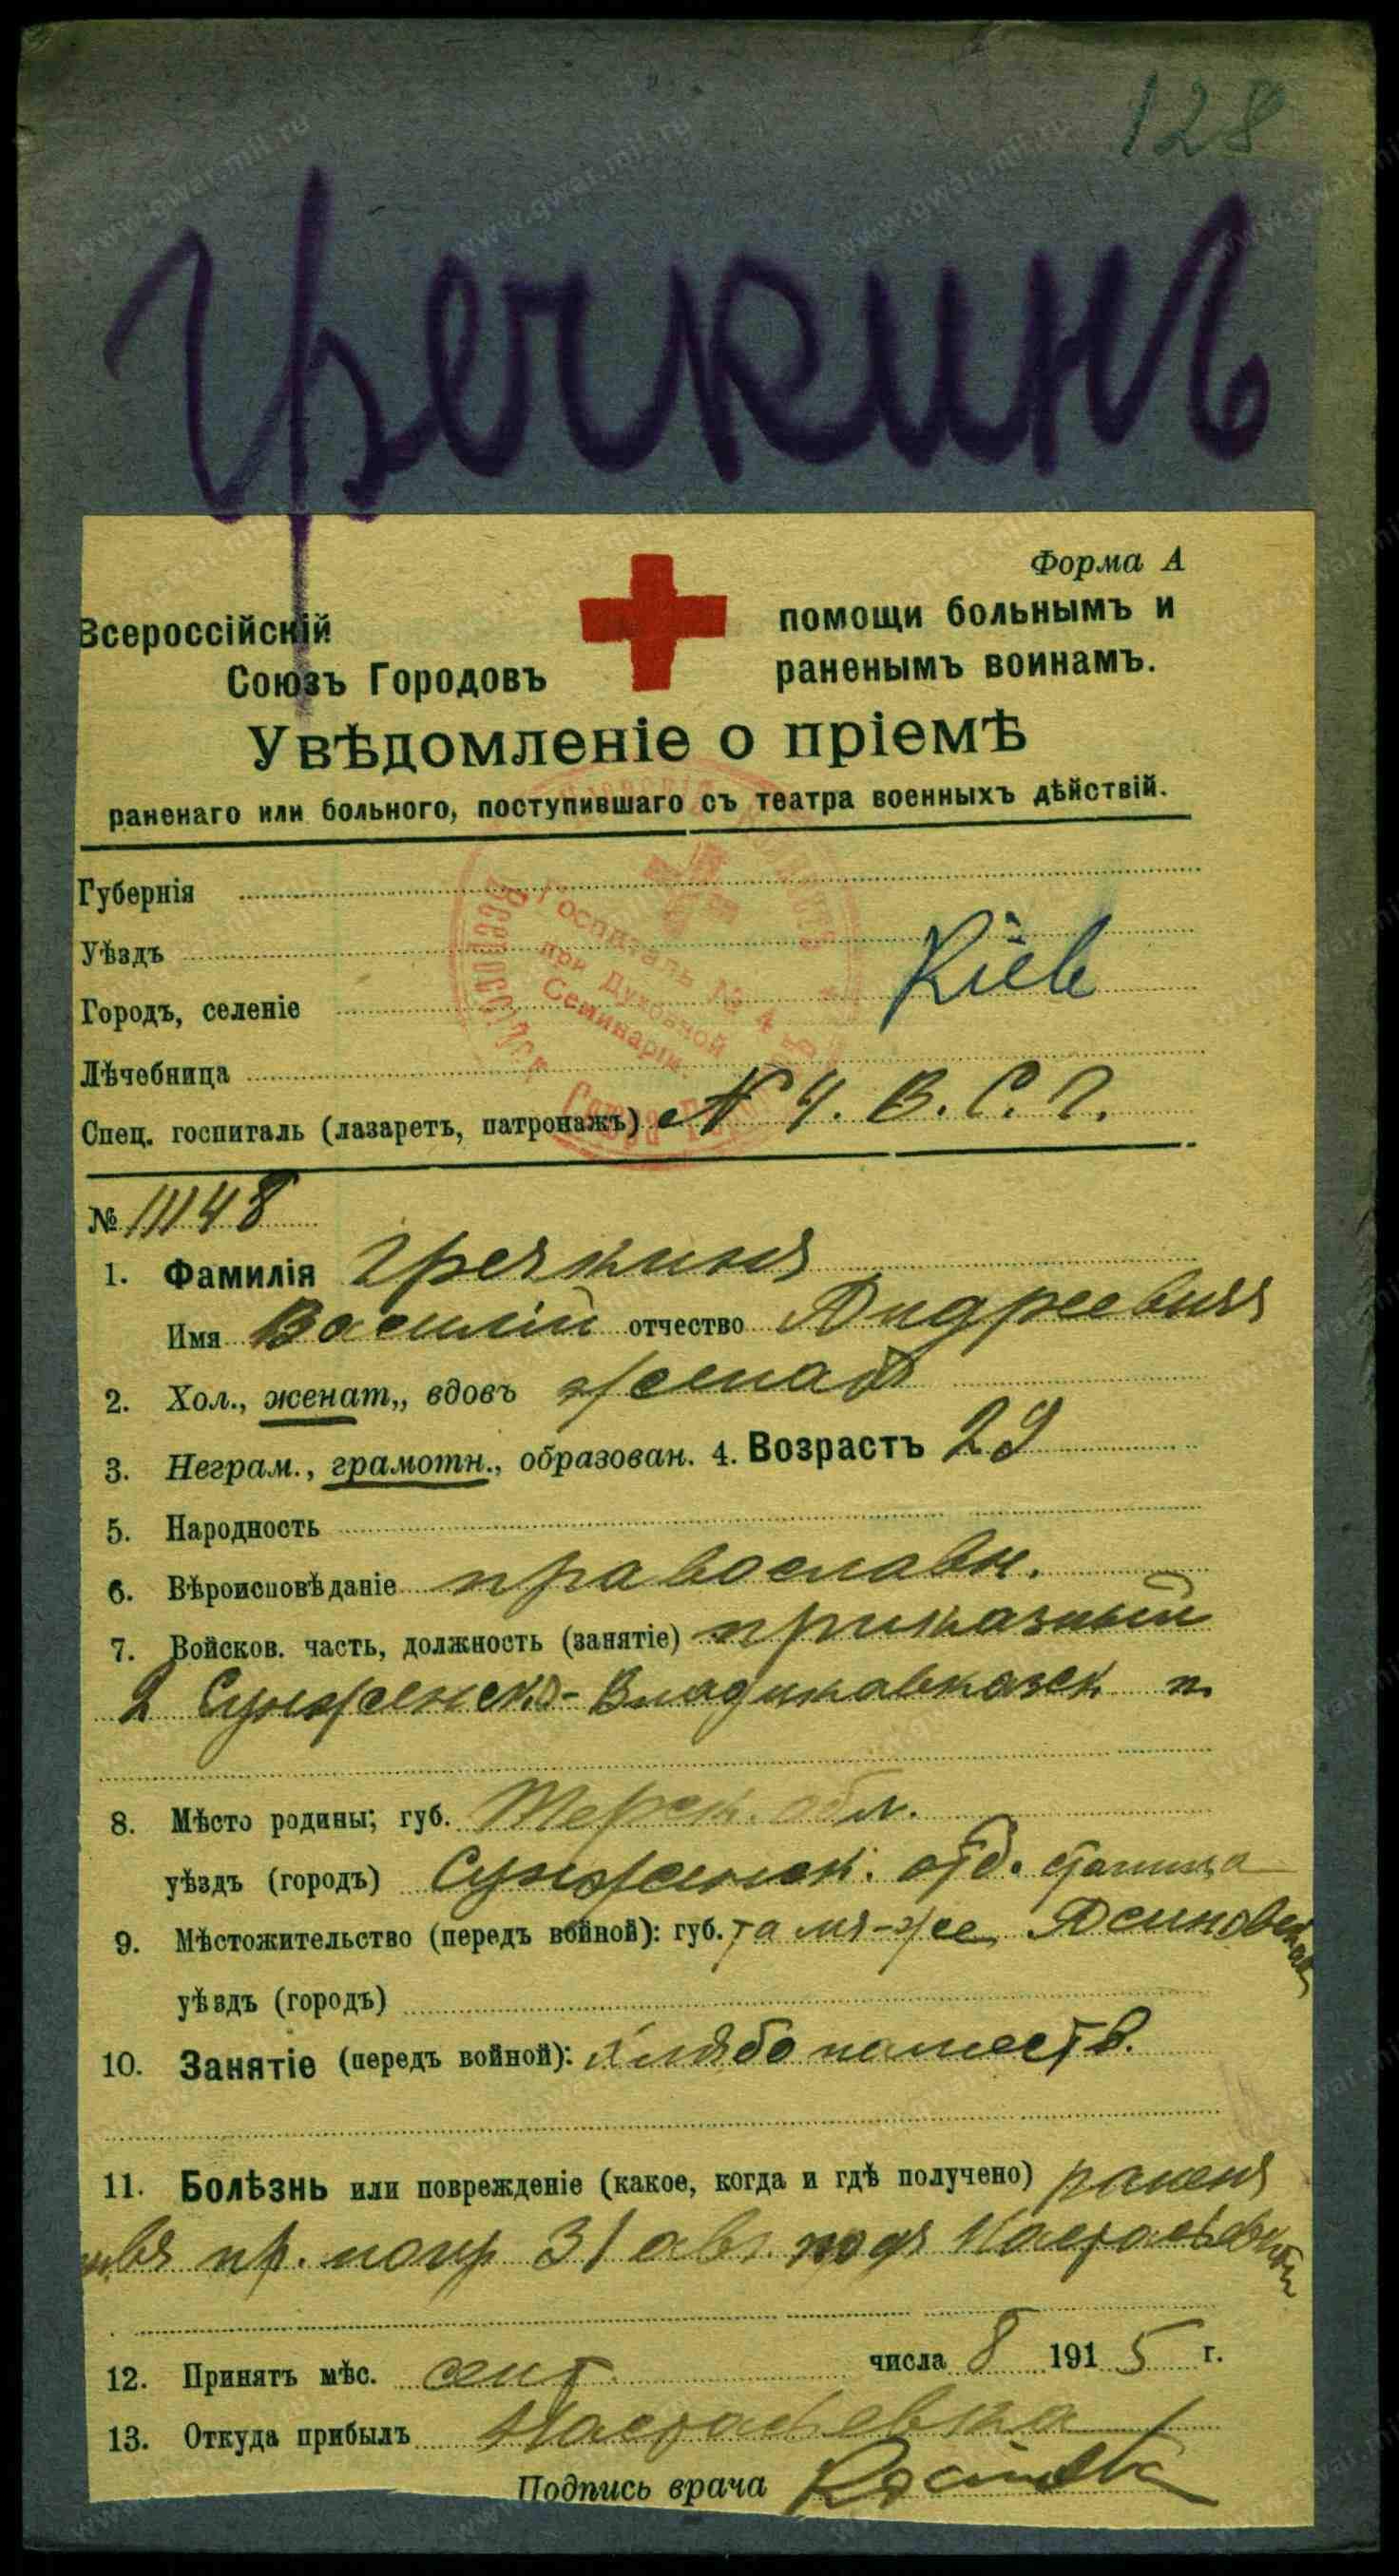 128
Гречкинъ
Форма А
Всероссійскій
Союзъ Городовъ
помощи больнымъ и
раненымъ воинамъ.
Увѣдомленіе о пріемѣ
раненаго или больного, поступившаго съ театра военныхъ дѣйствій.
Губернія
Уѣздъ
Городъ, селеніе Кіевъ
Лѣчебница
Госпиталь № 4
при Духовной
Семинаріи.
Спец. госпиталь (лазаретъ, патронажъ) № 4. В. С. Г.
№ 11148
1. Фамилія Гречкинъ
Имя Василій отчество Андреевичъ
2. Хол., женат., вдовъ женат
3. Неграм., грамотн., образован. 4. Возрастъ 29
5. Народность
6. Вѣроисповѣданіе православн.
7. Войсков. часть, должность (занятіе) приказный
2 Сунженско-Владикавказск п.
8. Мѣсто родины; губ. Терск. обл.
уѣздъ (городъ) Сунженск. отд. станица
9. Мѣстожительство (передъ войной): губ. тамъ-же Ассиновская
уѣздъ (городъ)
10. Занятіе (передъ войной): хлѣбопашеств.
11. Болѣзнь или поврежденіе (какое, когда и гдѣ получено) раненъ
пр. 31 авг. подъ
12. Принятъ мѣс. сент. числа 8 1915 г.
13. Откуда прибылъ
Подпись врача
www.gwar.mil.ru